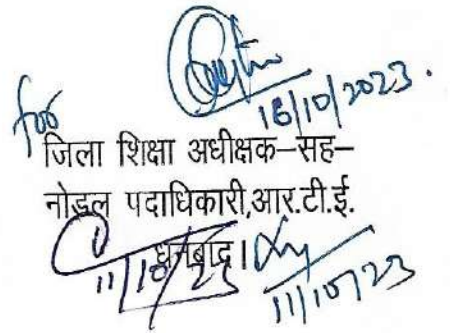 16/10/2023.
for
जिला शिक्षा अधीक्षक–सह–
नोडल पदाधिकारी,आर.टी.ई.
धनबाद।
11/10/23
11/10/23